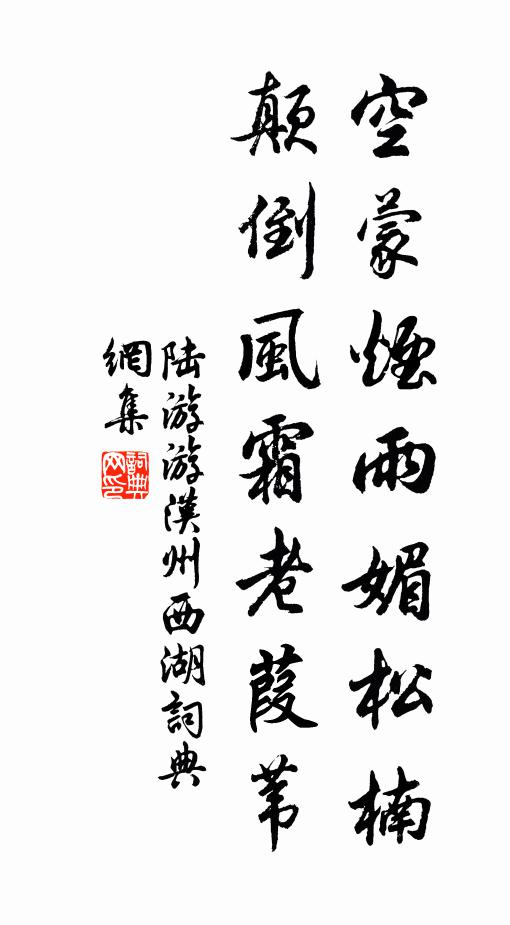 空蒙煙雨媚松楠
顛倒風霜老葭苇
陆游游漢州西湖詞典
網集
詞典網印